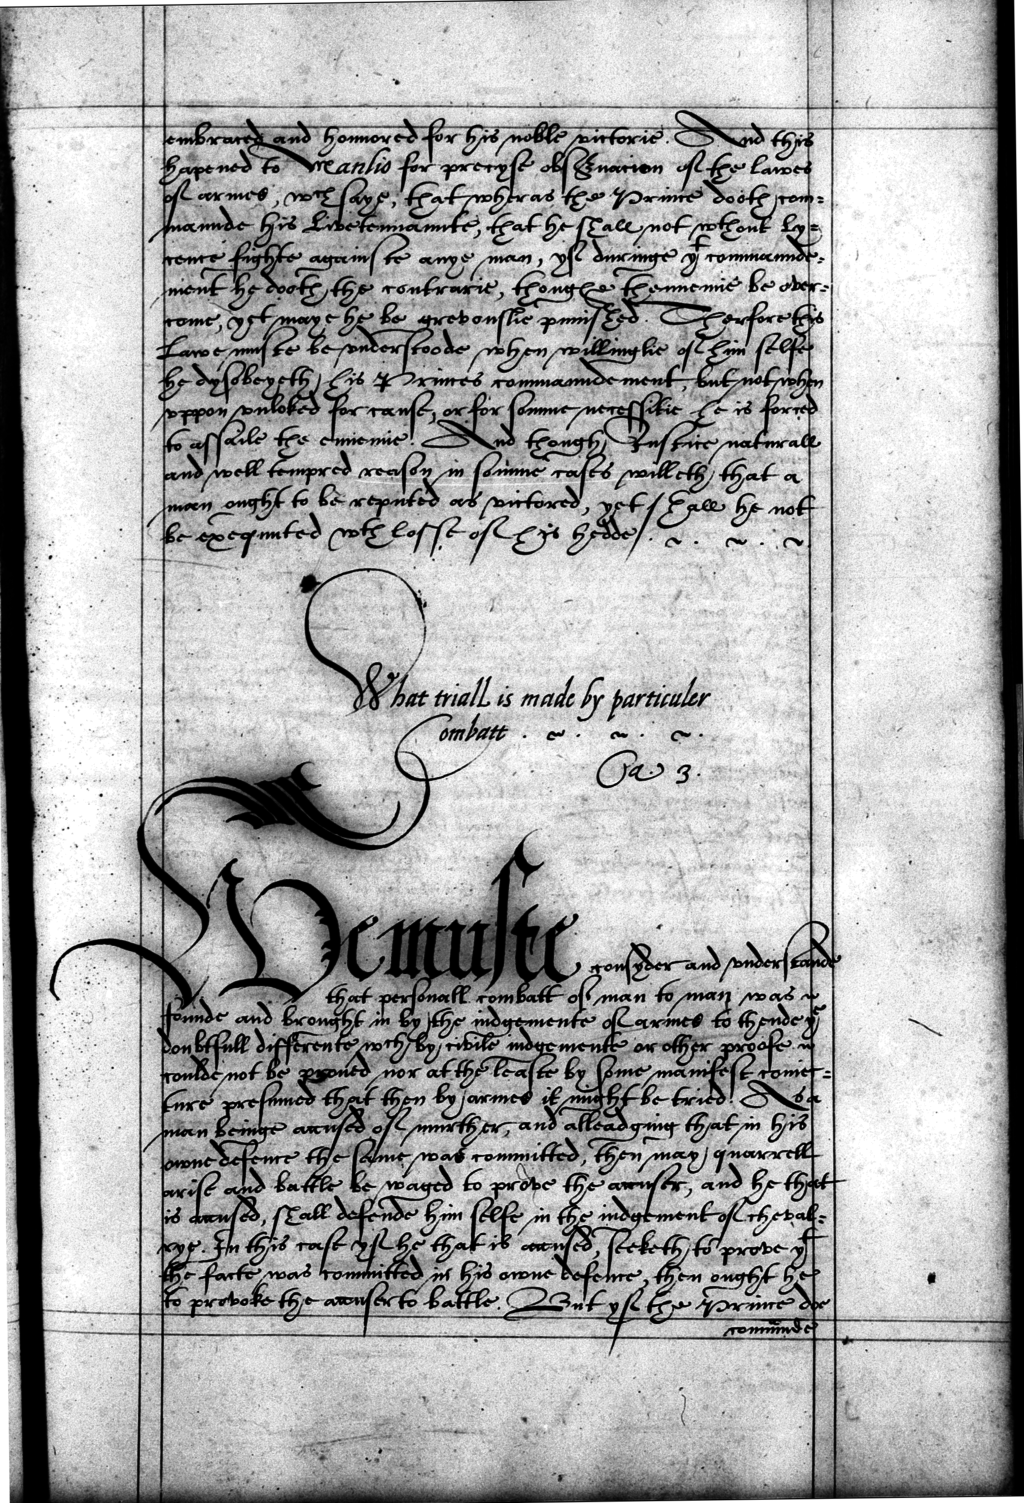 embraced and honnored for his noble victorie. And this
hapened to Manlio for precyse obseruacion of the lawes
of armes, wch saye, that wheras the Prince dooth com=
maunde his Livetennannte, that he shall not wthout ly=
cence fighte againste anye man, yf duringe yt commaunde=
ment he dooth the contrarie, thoughe thennemie be over=
come, yet maye he be grevouslie punished. Therfore this
Lawe muste be vnderstoode when willinglie of him selfe
he dysobeyeth his Princes commaundement, but not when
vppon vnloked for cause, or for somme necessitie he is forced
to assaile the ennemie. And though Iustice naturall
and well tempred reason in somme cases willeth that a
man ought to be reputed as victored, yet shall he not
be exequuted wth losse of his hedde.
What triall is made by particuler
Combatt.
Ca. 3.
We muste consyder and vnderstande
that personall combatt of man to man was
founde and brought in by the iudgemente of armes to thende ye
doubtfull differente wch by civile iudgemente or other proofe
coulde not be proued, nor at the leaste by some manifest coniec=
ture presumed that then by armes it might be tried. As a
man beinge accused of murther, and alleadging that in his
owne defence the same was committed, then may quarrell
arise and battle be waged to prove the accuser, and he that
is accused, shall defende him selfe in the iudgement of cheval=
rye. In this case yf he that is accused, seeketh to prove yt
the facte was committed in his owne defence, then ought he
to provoke the accuser to battle. But yf the Prince doe
comunde